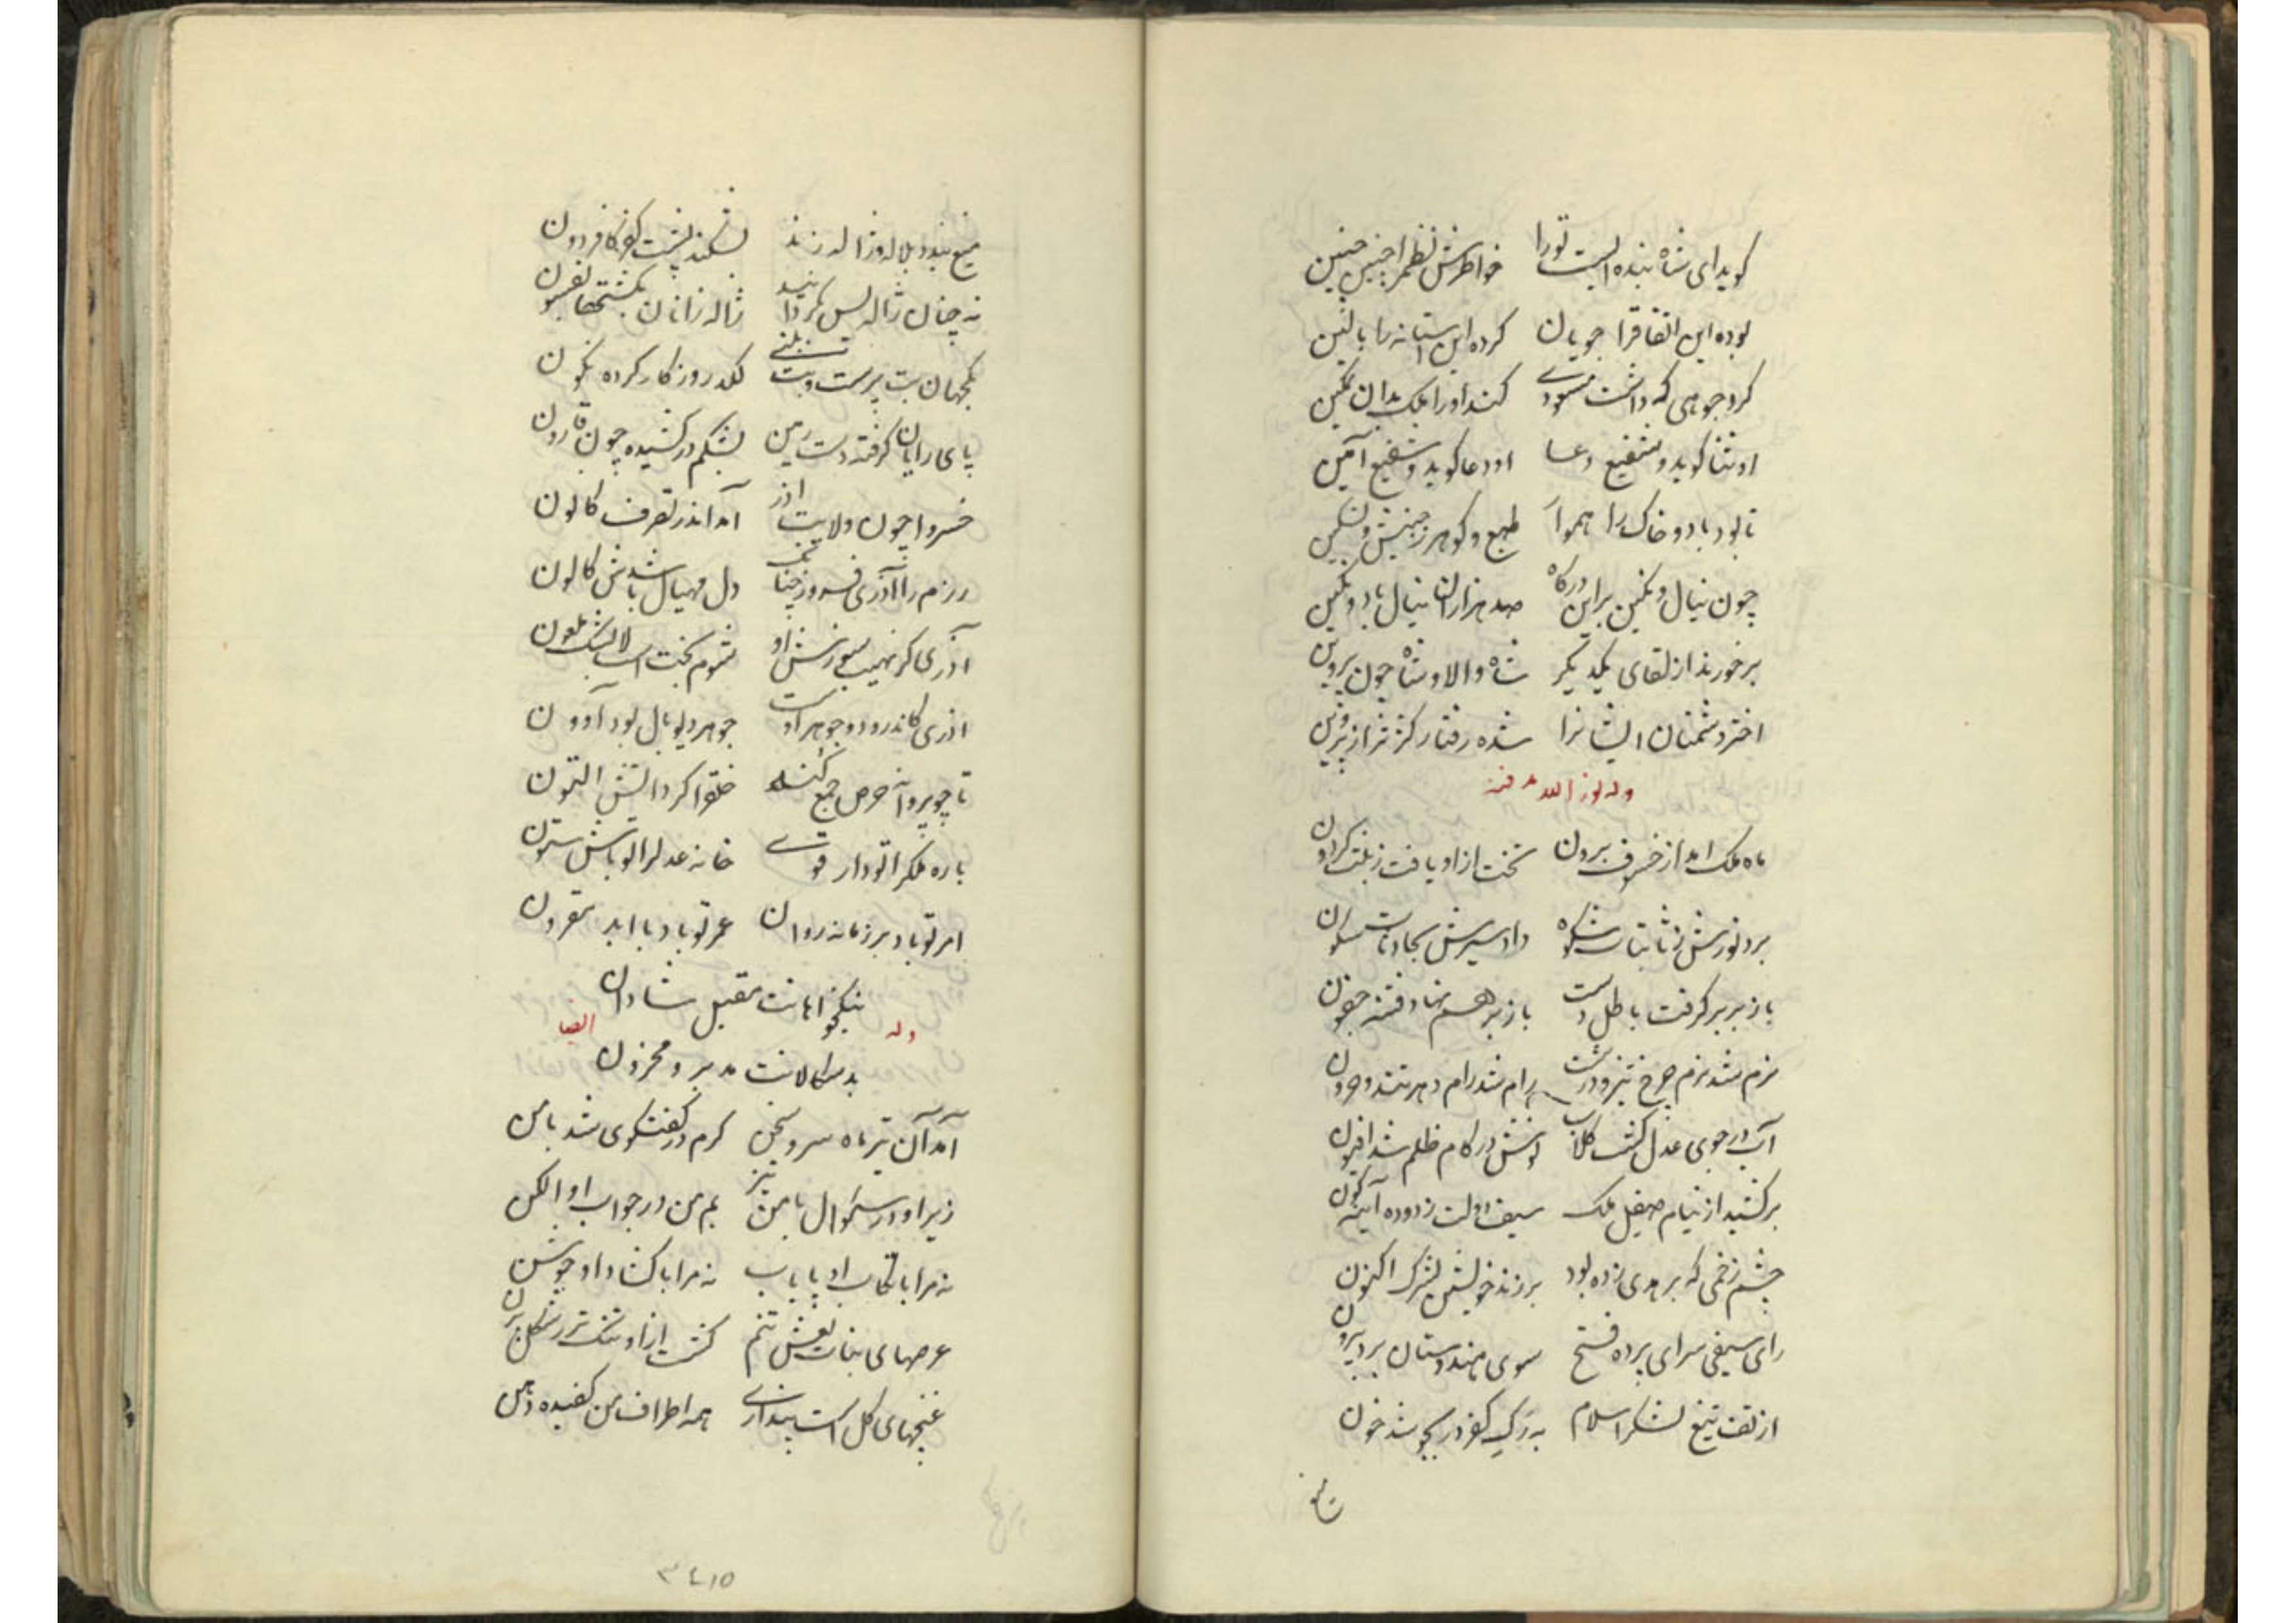 کوید ای شاه بنده ایست تو را خواطرش نظم را چنین چنین
بوده این اتفاق را جویان کرده این آستانه را بالین
کرد جوهی که داشت سودی کند او را ملک بدان تمکین
او ثنا کوید و شفیع دعا او دعا کوید و شفیع آمین
تا بود باد و خاک را هموار طبع و کوهر ز جنبش و تسکین
چون نیال و تکین براین درکاه صد هزاران نیال باد و تکین
برخورند از لقای یکدیکر شاه والا و شاه چون پروین
اختر دشمنان ایشانرا شده رفتار کژتر از فرزین
وله نور الله مرقده
ماه ملک امد از خسوف برون تخت ازاد یافت زینت
برد نورش ز ثابتات شکوه داد سیرش بحادثات سکون
باز بر بر کرفت باطل دست باز برهم نهاد فتنه جفون
نرم شد نرم چرخ تیز و درشت رام شد رام دهر تند و حرون
آب در جوی عدل کشت کلاب اتش در کام ظلم شد افیون
برکشید از نیام صیقل ملک سیف دولت زدوده آینه کون
چشم زخمی که بر هدی زده بود برزند خویشتن بشرک اکنون
رای سیفی سرای پرده فتح سوی هندوستان برد بیرون
از تف تیغ لشکر اسلام به رک کفر در بجوشد خون
تیغ
میغ بندد بلاله و ژاله زند بشکند پشت کفر کافر دون
نه چنان ژاله بس کردانید ژاله زانان بکشتها بفسون
یکجهان بت پرست و بت بینی لکد روزکار کرده نکون
پای رایان کرفته دست زمین بشکم درکشیده چون قارون
خسروا چون ولایت اذر آمد اندر تصرف کانون
رزم را آذری فروز چنانک دل مهیال باشدش کانون
آذری کز نهیب سوزش او شوم بخت است لابسک ملعون
اذری کاندر و دو جوهر اوست جوهر دیو بال بود آوون
تا چو پروانه حرص جمع کند خلق را کرد اتش التون
باره ملک را تو دار قوی خانه عدل را تو باش ستون
امر تو باد بر زمانه روان عمر تو باد با ابد مقرون
نیکخواهانت مقبل شادان
وله ایضا
بدسکالانت مدبر و محزون
آمد آن تیر ماه سرد سخن کرم در کفتکوی شد با من
زیر او در سئوال با من تیز بم من در جواب او الکن
نه مرا با تکاب او پایاب نه مرا با کشاد او جوشن
عرصهای بنات نعش تنم کشت ازاد تنک تر ز شکل پرن
غنجهای کل است پنداری همه اطراف من کفیده دهن
۳٤۱۵